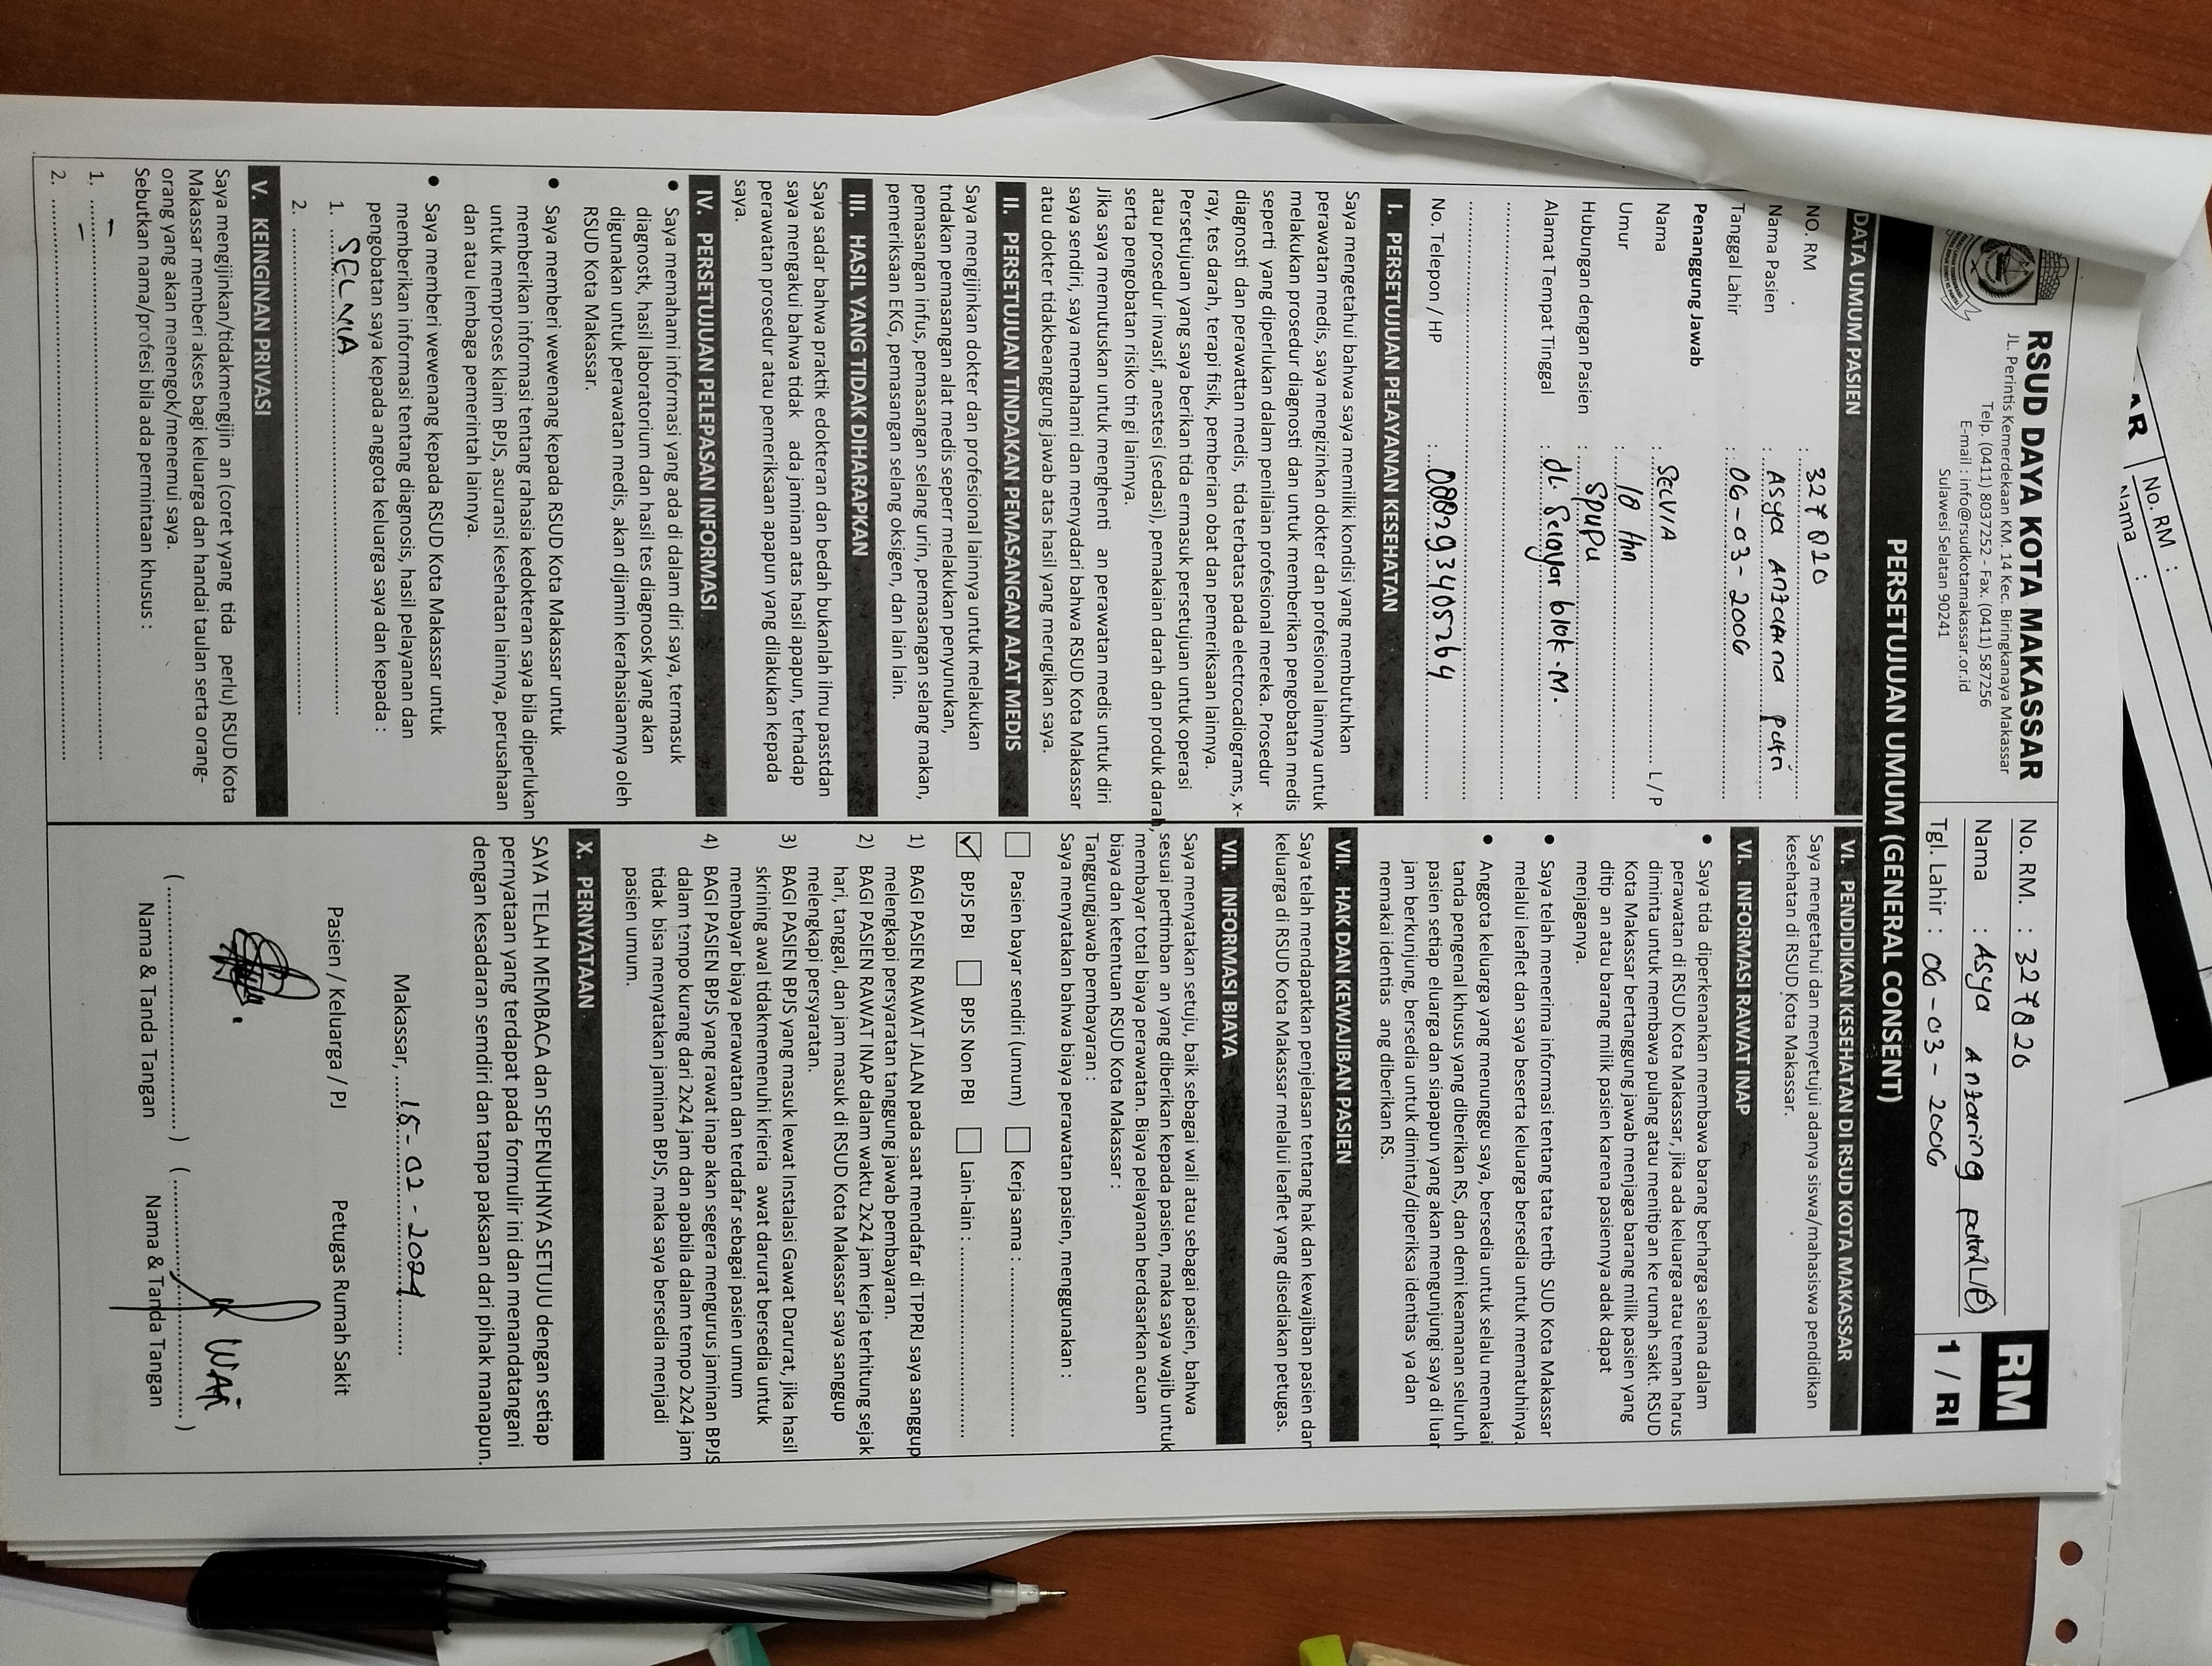 RSUD DAYA KOTA MAKASSAR
JL. Perintis Kemerdekaan KM. 14 Kec. Biringkanaya Makassar
Telp. (0411) 8037252 - Fax. (0411) 587256
E-mail : info@rsudkotamakassar.or.id
Sulawesi Selatan 90241
No. RM. : 327820
Nama : Asya Anjariana putri (L/P)
Tgl. Lahir : 06-03-2006
RM
1 / RI
PERSETUJUAN UMUM (GENERAL CONSENT)
DATA UMUM PASIEN
NO. RM : 327820
Nama Pasien : Asya putri
Tanggal Lahir : 06-03-2006
Penanggung Jawab
Nama : SELVIA L / P
Umur : 18 thn
Hubungan dengan Pasien : spupu
Alamat Tempat Tinggal : Jl. blok .M.
No. Telepon / HP : 088293405264
I. PERSETUJUAN PELAYANAN KESEHATAN
Saya mengetahui bahwa saya memiliki kondisi yang membutuhkan
perawatan medis, saya mengizinkan dokter dan profesional lainnya untuk
melakukan prosedur diagnosti dan untuk memberikan pengobatan medis
seperti yang diperlukan dalam penilaian profesional mereka. Prosedur
diagnosti dan perawattan medis, tida terbatas pada electrocadiograms, x-
ray, tes darah, terapi fisik, pemberian obat dan pemeriksaan lainnya.
Persetujuan yang saya berikan tida ermasuk persetujuan untuk operasi
atau prosedur invasif, anestesi (sedasi), pemakaian darah dan produk darah,
serta pengobatan risiko tingi lainnya.
Jika saya memutuskan untuk menghenti an perawatan medis untuk diri
saya sendiri, saya memahami dan menyadari bahwa RSUD Kota Makassar
atau dokter tidakbeanggung jawab atas hasil yang merugikan saya.
II. PERSETUJUAN TINDAKAN PEMASANGAN ALAT MEDIS
Saya mengijinkan dokter dan profesional lainnya untuk melakukan
tndakan pemasangan alat medis seperr melakukan penyunukan,
pemasangan infus, pemasangan selang urin, pemasangan selang makan,
pemeriksaan EKG, pemasangan selang oksigen, dan lain lain.
III. HASIL YANG TIDAK DIHARAPKAN
Saya sadar bahwa praktik edokteran dan bedah bukanlah ilmu passtdan
saya mengakui bahwa tidak ada jaminan atas hasil apapun, terhadap
perawatan prosedur atau pemeriksaan apapun yang dilakukan kepada
saya.
IV. PERSETUJUAN PELEPASAN INFORMASI
• Saya memahami informasi yang ada di dalam diri saya, termasuk
diagnostk, hasil laboratorium dan hasil tes diagnoosk yang akan
digunakan untuk perawatan medis, akan dijamin kerahasiaannya oleh
RSUD Kota Makassar.
• Saya memberi wewenang kepada RSUD Kota Makassar untuk
memberikan informasi tentang rahasia kedokteran saya bila diperlukan
untuk memproses klaim BPJS, asuransi kesehatan lainnya, perusahaan
dan atau lembaga pemerintah lainnya.
• Saya memberi wewenang kepada RSUD Kota Makassar untuk
memberikan informasi tentang diagnosis, hasil pelayanan dan
pengobatan saya kepada anggota keluarga saya dan kepada :
1. SELVIA
2.
V. KEINGINAN PRIVASI
Saya mengijinkan/tidakmengijin an (coret yyang tida perlu) RSUD Kota
Makassar memberi akses bagi keluarga dan handai taulan serta orang-
orang yang akan menengok/menemui saya.
Sebutkan nama/profesi bila ada permintaan khusus :
1. - -
2.
VI. PENDIDIKAN KESEHATAN DI RSUD KOTA MAKASSAR
Saya mengetahui dan menyetujui adanya siswa/mahasiswa pendidikan
kesehatan di RSUD Kota Makassar.
VI. INFORMASI RAWAT INAP
• Saya tida diperkenankan membawa barang berharga selama dalam
perawatan di RSUD Kota Makassar, jika ada keluarga atau teman harus
diminta untuk membawa pulang atau menitip an ke rumah sakit. RSUD
Kota Makassar bertanggung jawab menjaga barang milik pasien yang
ditip an atau barang milik pasien karena pasiennya adak dapat
menjaganya.
• Saya telah menerima informasi tentang tata tertib SUD Kota Makassar
melalui leaflet dan saya beserta keluarga bersedia untuk mematuhinya.
• Anggota keluarga yang menunggu saya, bersedia untuk selalu memakai
tanda pengenal khusus yang diberikan RS, dan demi keamanan seluruh
pasien setiap eluarga dan siapapun yang akan mengunjungi saya di luar
jam berkunjung, bersedia untuk diminta/diperiksa identias ya dan
memakai identias ang diberikan RS.
VII. HAK DAN KEWAJIBAN PASIEN
Saya telah mendapatkan penjelasan tentang hak dan kewajiban pasien dan
keluarga di RSUD Kota Makassar melalui leaflet yang disediakan petugas.
VII. INFORMASI BIAYA
Saya menyatakan setuju, baik sebagai wali atau sebagai pasien, bahwa
sesuai pertimban an yang diberikan kepada pasien, maka saya wajib untuk
membayar total biaya perawatan. Biaya pelayanan berdasarkan acuan
biaya dan ketentuan RSUD Kota Makassar :
Tanggungjawab pembayaran :
Saya menyatakan bahwa biaya perawatan pasien, menggunakan :
Pasien bayar sendiri (umum) Kerja sama :
BPJS PBI BPJS Non PBI Lain-lain :
1) BAGI PASIEN RAWAT JALAN pada saat mendafar di TPPRJ saya sanggup
melengkapi persyaratan tanggung jawab pembayaran.
2) BAGI PASIEN RAWAT INAP dalam waktu 2x24 jam kerja terhitung sejak
hari, tanggal, dan jam masuk di RSUD Kota Makassar saya sanggup
melengkapi persyaratan.
3) BAGI PASIEN BPJS yang masuk lewat Instalasi Gawat Darurat, jika hasil
skrining awal tidakmemenuhi krieria awat darurat bersedia untuk
membayar biaya perawatan dan terdafar sebagai pasien umum
4) BAGI PASIEN BPJS yang rawat inap akan segera mengurus jaminan BPJS
dalam tempo kurang dari 2x24 jam dan apabila dalam tempo 2x24 jam
tidak bisa menyatakan jaminan BPJS, maka saya bersedia menjadi
pasien umum.
X. PERNYATAAN
SAYA TELAH MEMBACA dan SEPENUHNYA SETUJU dengan setiap
pernyataan yang terdapat pada formulir ini dan menandatangani
dengan kesadaran semdiri dan tanpa paksaan dari pihak manapun.
Makassar, 15-02-2024
Pasien / Keluarga / PJ Petugas Rumah Sakit
( ) ( )
Nama & Tanda Tangan Nama & Tanda Tangan
AR
No. RM :
Nama :